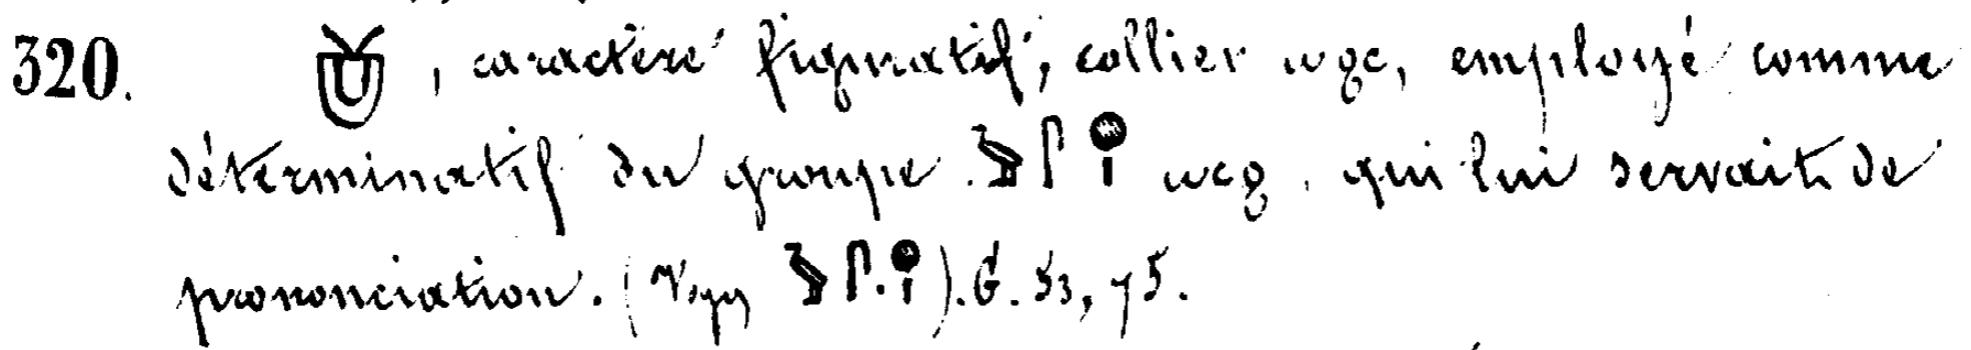 320. , caractère figuratif, collier ⲱϩⲥ, employé comme
déterminatif du groupe ⲱⲥϩ, qui lui servait de
prononciation. (Voyez ). G. 53, 75.